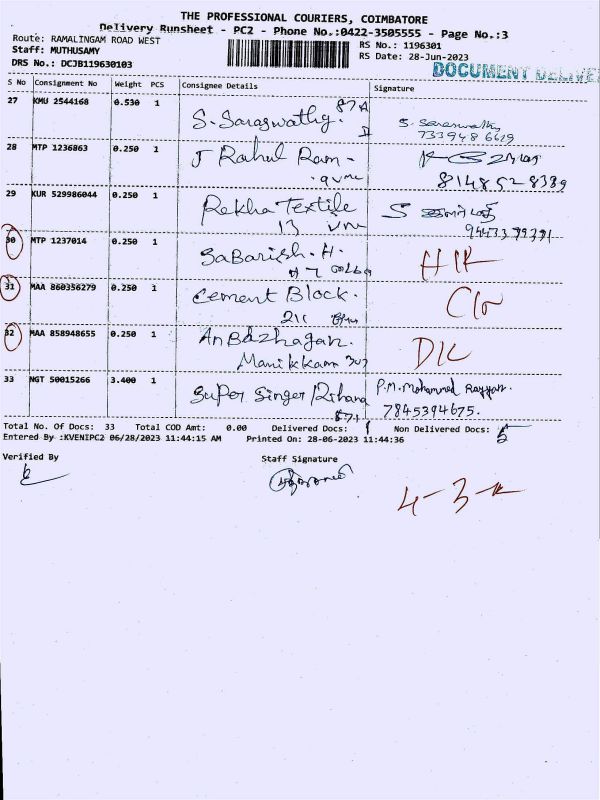 THE PROFESSIONAL COURIERS, COIMBATORE
Delivery Runsheet - PC2 - Phone No.:0422-3505555 - Page No.:3
Route: RAMALINGAM ROAD WEST
RS No.: 1196301
Staff: MUTHUSAMY
RS Date: 28-Jun-2023
DRS No.: DCJB119630103
DOCUMENT DELIVE
S No Consignment No Weight PCS Consignee Details Signature
27 KMU 2544168 0.530 1 S. Saraswathy. 87A
S. Saraswathy
7339486629
28 MTP 1236863 0.250 1 J Rahul Ram -
8148528389
29 KUR 529986044 0.250 1 Rekha Textile
13
9443379371
30 MTP 1237014 0.250 1 SaBarish. H.
31 MAA 860356279 0.250 1 Cement Block.
32 MAA 858948655 0.250 1 AnBazhagan.
Manikkam DIC
33 NGT 50015266 3.400 1 Super Singer P.M. Mohammed Rayyan.
871 7845394675.
Total No. Of Docs: 33 Total COD Amt: 0.00 Delivered Docs: Non Delivered Docs: 5
Entered By :KVENIPC2 06/28/2023 11:44:15 AM Printed On: 28-06-2023 11:44:36
Verified By Staff Signature
4-3-